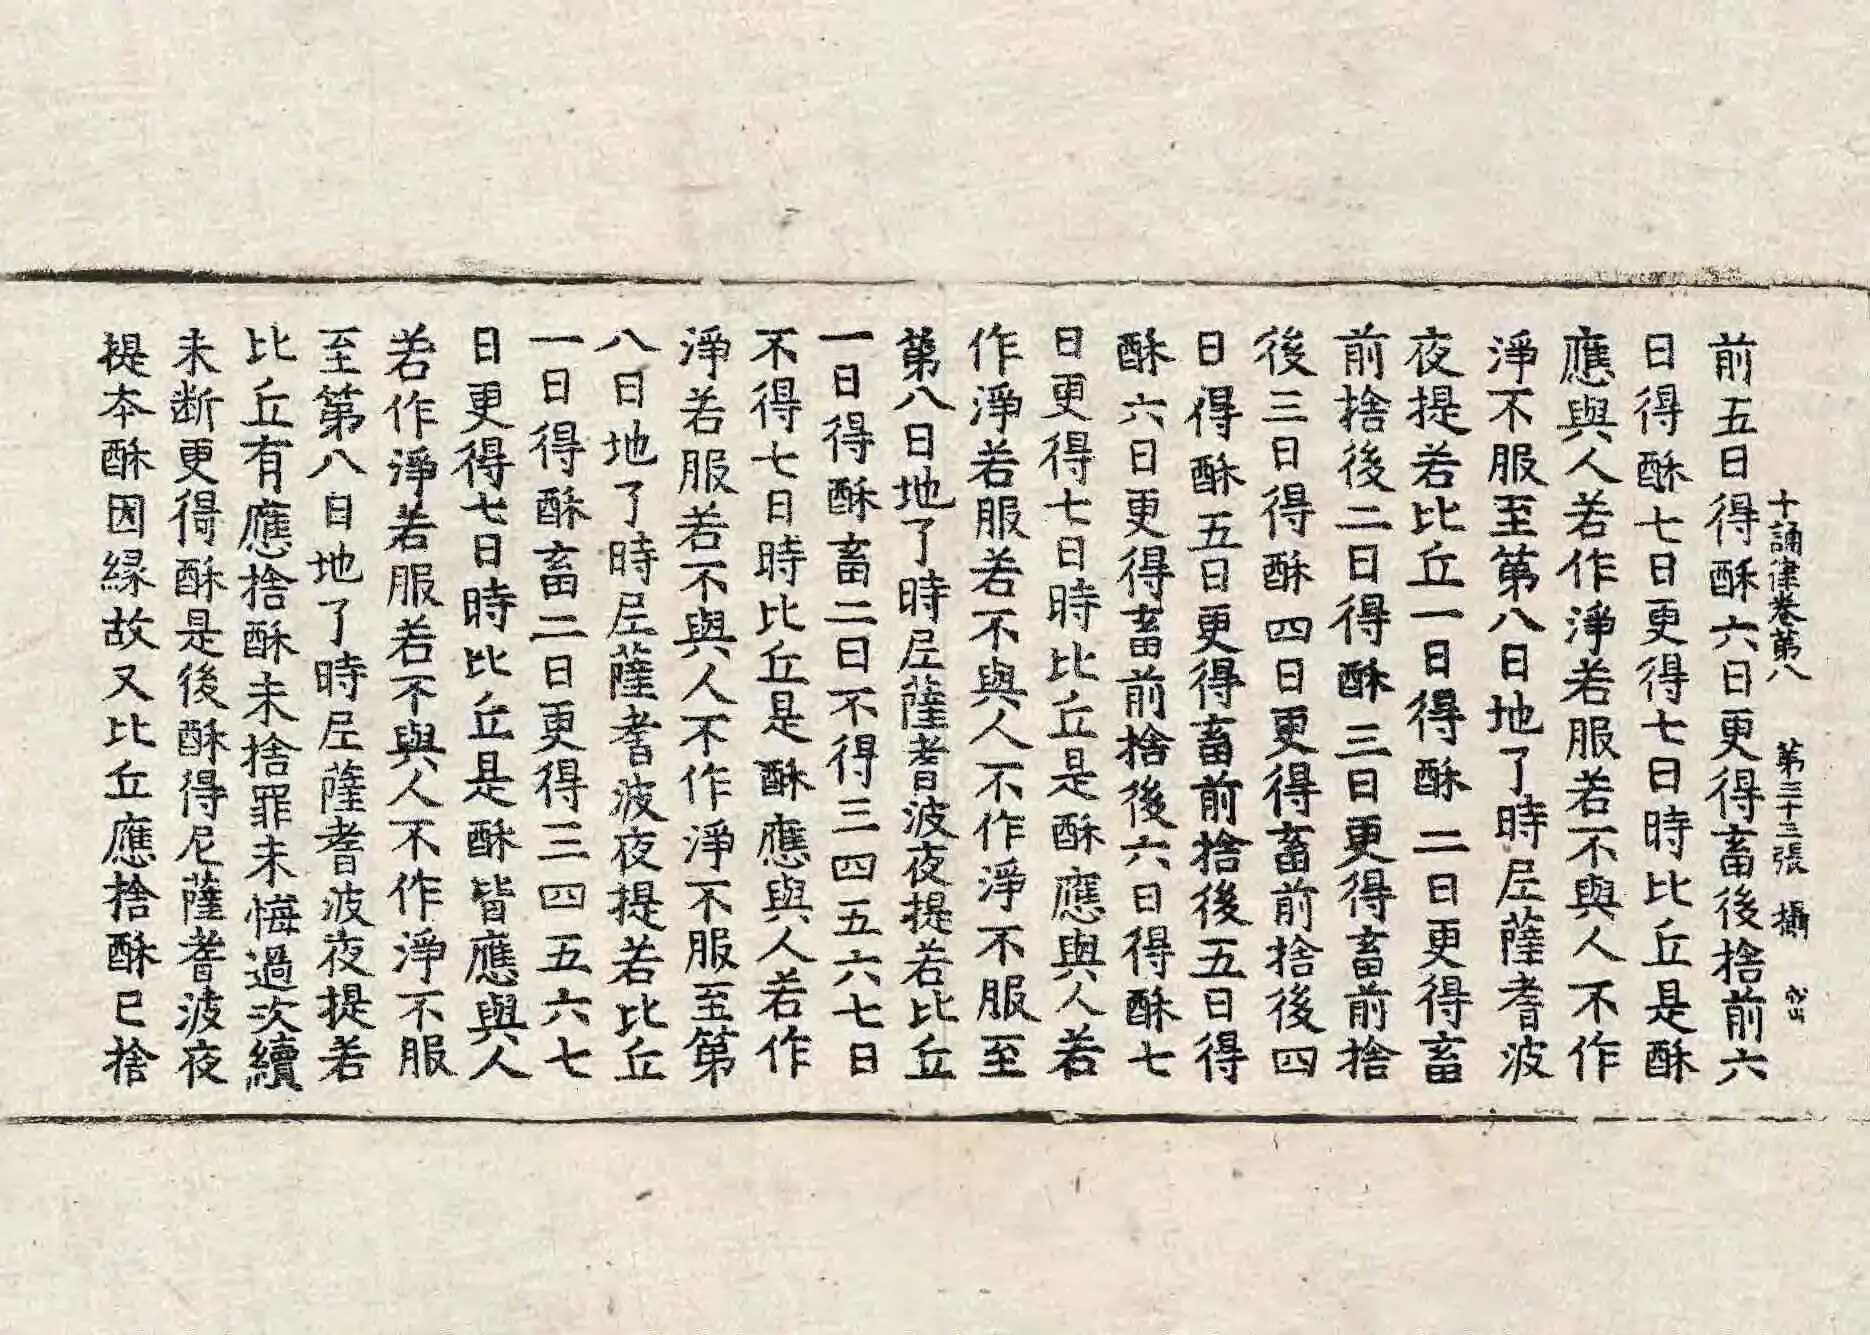 十誦律卷第八 第三十三張 攝
前五日得酥六日更得畜後捨前六
日得酥七日更得七日時比丘是酥
應與人若作淨若服若不與人不作
淨不服至第八日地了時尼薩耆波
夜提若比丘一日得酥二日更得畜
前捨後二日得酥三日更得畜前捨
後三日得酥四日更得畜前捨後四
日得酥五日更得畜前捨後五日得
酥六日更得畜前捨後六日得酥七
日更得七日時比丘是酥應與人若
作淨若服若不與人不作淨不服至
第八日地了時尼薩耆波夜提若比丘
一日得酥畜二日不得三四五六七日
不得七日時比丘是酥應與人若作
淨若服若不與人不作淨不服至第
八日地了時尼薩耆波夜提若比丘
一日得酥畜二日更得三四五六七
日更得七日時比丘是酥皆應與人
若作淨若服若不與人不作淨不服
至第八日地了時尼薩耆波夜提若
比丘有應捨酥未捨罪未悔過次續
未断更得酥是後酥得尼薩耆波夜
提本酥因緣故又比丘應捨酥已捨